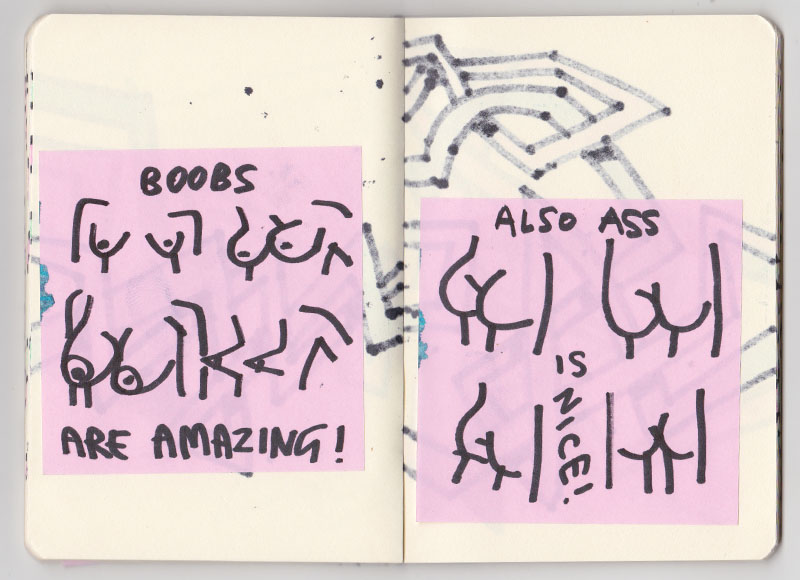 BOOBS
ARE AMAZING!
ALSO ASS
IS
NICE!